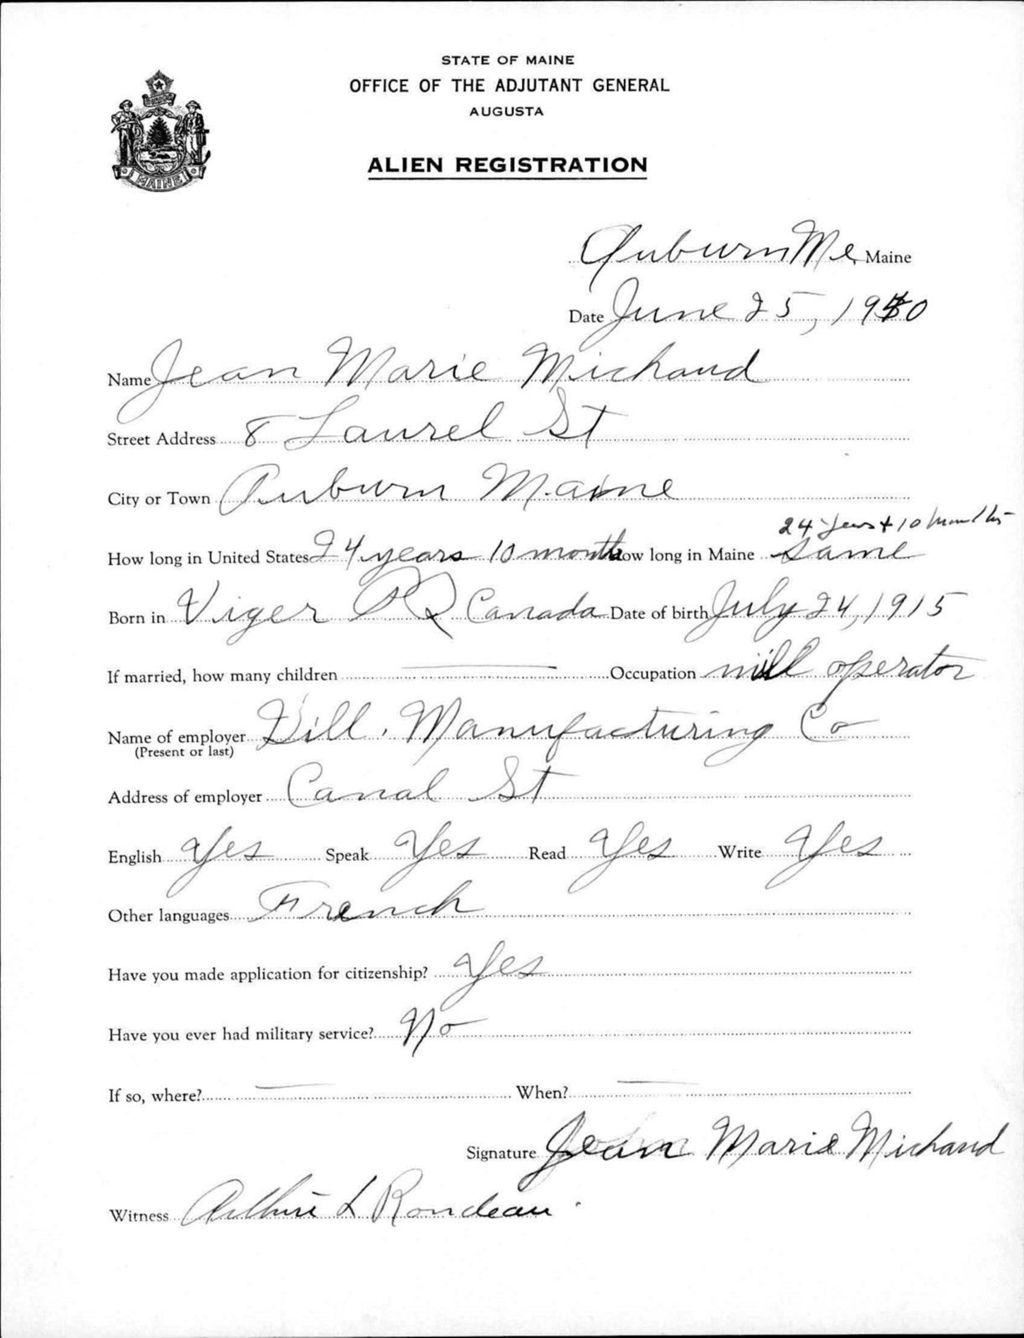 STATE OF MAINE
OFFICE OF THE ADJUTANT GENERAL
AUGUSTA
ALIEN REGISTRATION
MAINE
Auburn Me, Maine
Date June 25, 1940
Name Jean Marie Michaud
Street Address 8 Laurel St
City or Town Auburn Maine
24 years + 10 months
How long in United States 24 years 10 months How long in Maine Same
Born in Viger P Q Canada Date of birth July 24, 1915
If married, how many children Occupation mill operator
Name of employer Hill Manufacturing Co
(Present or last)
Address of employer Canal St
English Yes Speak Yes Read Yes Write Yes
Other languages French
Have you made application for citizenship? Yes
Have you ever had military service? No
If so, where? When?
Signature Jean Marie Michaud
Witness Arthur L Rondeau